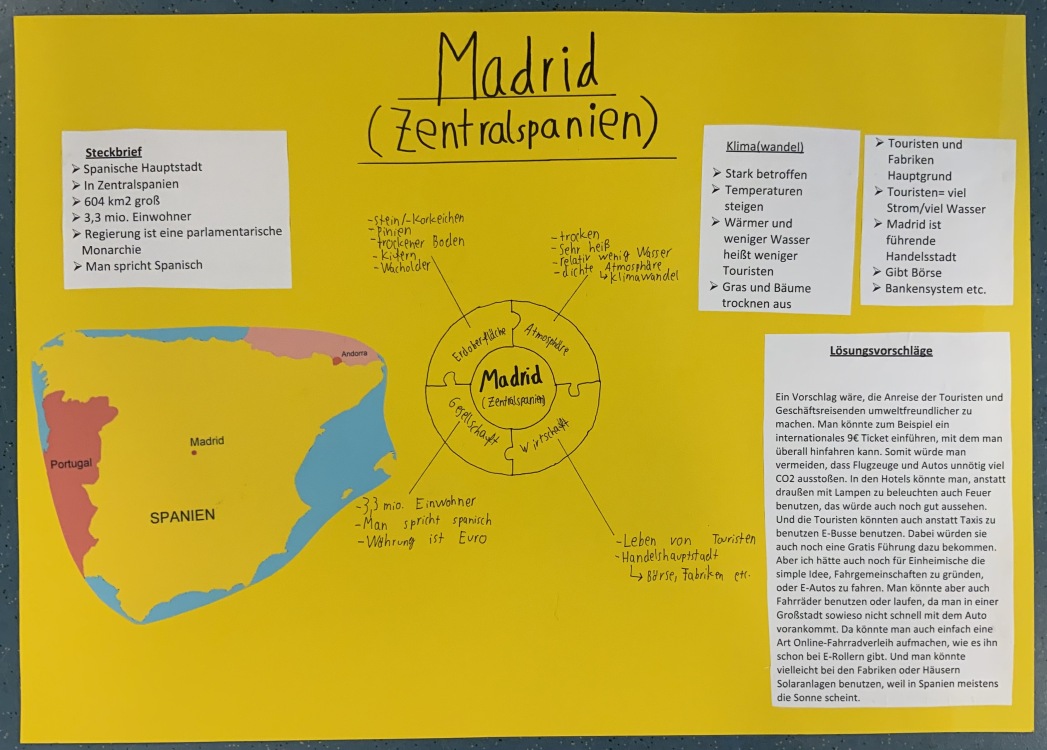 Madrid
(Zentralspanien)
Steckbrief
➢ Spanische Hauptstadt
➢ In Zentralspanien
➢ 604 km2 groß
➢ 3,3 mio. Einwohner
➢ Regierung ist eine parlamentarische
Monarchie
➢ Man spricht Spanisch
Klima(wandel)
➢ Stark betroffen
➢ Temperaturen
steigen
➢ Wärmer und
weniger Wasser
heißt weniger
Touristen
➢ Gras und Bäume
trocknen aus
➢ Touristen und
Fabriken
Hauptgrund
➢ Touristen= viel
Strom/viel Wasser
➢ Madrid ist
führende
Handelsstadt
➢ Gibt Börse
➢ Bankensystem etc.
-Stein/-Korkeichen
-Pinien
-trockener Boden
-Kiefern
-Wacholder
-trocken
-Sehr heiß
-relativ wenig Wasser
-dichte Atmosphäre
↳Klimawandel
Erdoberfläche
Atmosphäre
Madrid
(Zentralspanien)
Gesellschauft
Wirtschaft
-3,3 mio. Einwohner
-Man spricht spanisch
-Währung ist Euro
-Leben von Touristen
-Handelshauptstadt
↳ Börse, Fabriken etc.
Andorra
Portugal
Madrid
SPANIEN
Lösungsvorschläge
Ein Vorschlag wäre, die Anreise der Touristen und
Geschäftsreisenden umweltfreundlicher zu
machen. Man könnte zum Beispiel ein
internationales 9€ Ticket einführen, mit dem man
überall hinfahren kann. Somit würde man
vermeiden, dass Flugzeuge und Autos unnötig viel
CO2 ausstoßen. In den Hotels könnte man, anstatt
draußen mit Lampen zu beleuchten auch Feuer
benutzen, das würde auch noch gut aussehen.
Und die Touristen könnten auch anstatt Taxis zu
benutzen E-Busse benutzen. Dabei würden sie
auch noch eine Gratis Führung dazu bekommen.
Aber ich hätte auch noch für Einheimische die
simple Idee, Fahrgemeinschaften zu gründen,
oder E-Autos zu fahren. Man könnte aber auch
Fahrräder benutzen oder laufen, da man in einer
Großstadt sowieso nicht schnell mit dem Auto
vorankommt. Da könnte man auch einfach eine
Art Online-Fahrradverleih aufmachen, wie es ihn
schon bei E-Rollern gibt. Und man könnte
vielleicht bei den Fabriken oder Häusern
Solaranlagen benutzen, weil in Spanien meistens
die Sonne scheint.